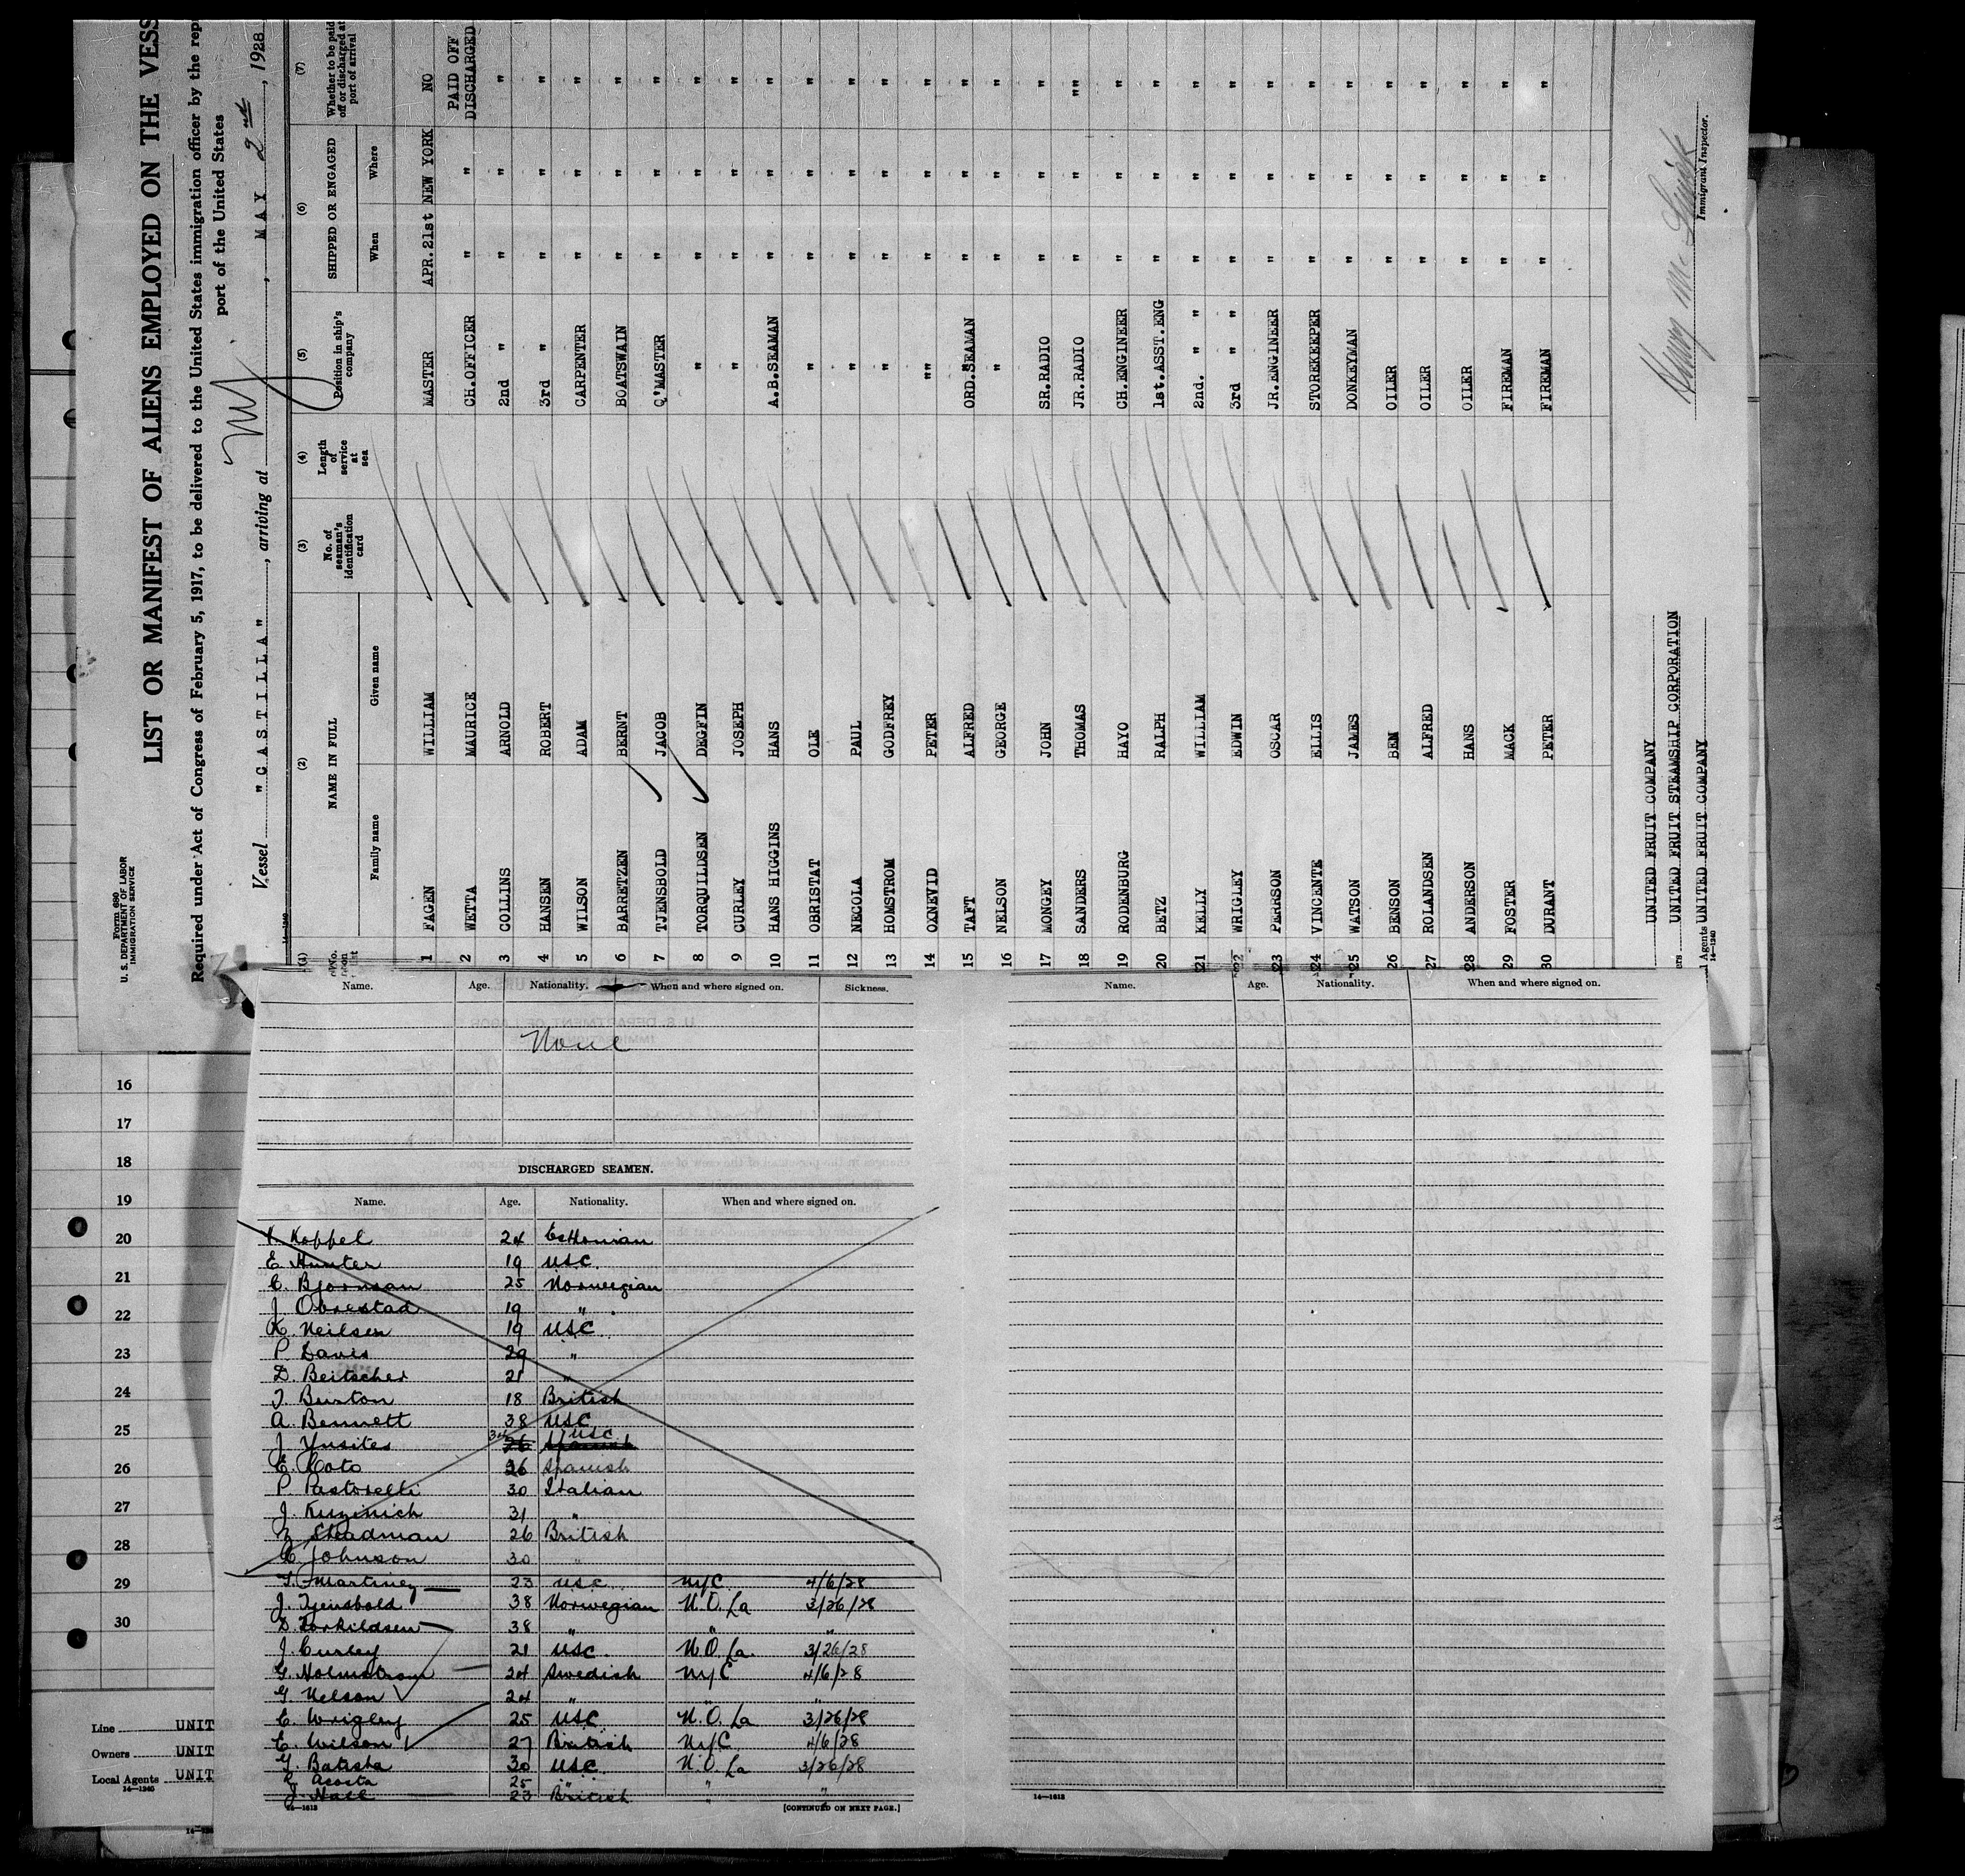 Form 680
U. S. DEPARTMENT OF LABOR
IMMIGRATION SERVICE
LIST OR MANIFEST OF ALIENS EMPLOYED ON THE VESS
Required under Act of Congress of February 5, 1917, to be delivered to the United States immigration officer by the rep
port of the United States
Vessel "CASTILLA", arriving at , MAY 2nd, 1928
14-1240
(1) (2) (3) (4) (5) (6) (7)
NAME IN FULL
No. of seaman's identification card
Length of service at sea
Position in ship's company
SHIPPED OR ENGAGED
Whether to be paid off or discharged at port of arrival
Family name Given name When Where
1 FAGEN WILLIAM MASTER APR.21st NEW YORK NO
2 WETTA MAURICE CH.OFFICER " " PAID OFF DISCHARGED
3 COLLINS ARNOLD 2nd " " " "
4 HANSEN ROBERT 3rd " " " "
5 WILSON ADAM CARPENTER " " "
6 BARRETZEN BERNT BOATSWAIN " " "
7 TJENSBOLD JACOB Q'MASTER " " "
8 TORQUILDSEN DEGFIN " " " "
9 CURLEY JOSEPH " " " "
10 HANS HIGGINS HANS A.B.SEAMAN " " "
11 OBRISTAT OLE " " " "
12 NECOLA PAUL " " " "
13 HOMSTROM GODFREY " " " "
14 OXNEVID PETER "" " " "
15 TAFT ALFRED ORD.SEAMAN " " "
16 NELSON GEORGE " " " "
17 MONGEY JOHN SR.RADIO " " "
18 SANDERS THOMAS JR.RADIO " " ""
19 RODENBURG HAYO CH.ENGINEER " " "
20 BETZ RALPH 1st.ASST.ENG " " "
21 KELLY WILLIAM 2nd. " " " " "
22 WRIGLEY EDWIN 3rd " " " " "
23 PERRSON OSCAR JR.ENGINEER " " "
24 VINCENTE ELLIS STOREKEEPER " " "
25 WATSON JAMES DONKEYMAN " " "
26 BENSON BEN OILER " " "
27 ROLANDSEN ALFRED OILER " " "
28 ANDERSON HANS OILER " " "
29 FOSTER MACK FIREMAN " " "
30 DURANT PETER FIREMAN " " "
UNITED FRUIT COMPANY
UNITED FRUIT STEAMSHIP CORPORATION
Agents UNITED FRUIT COMPANY
14-1240
Immigrant Inspector.
Name. Age. Nationality. When and where signed on. Sickness.
None
DISCHARGED SEAMEN.
Name. Age. Nationality. When and where signed on.
Koppel 24 Esthonian
E. Hunter 19 USC
C. Bjornson 25 Norwegian
J. Obrestad 19 "
K. Neilsen 19 USC
P. Davis 29 "
D. Beitscher 21 "
T. Burton 18 British
A. Bennett 38 USC
J. 34 USC
E. Koto 26 Spanish
P. Pastorelli 30 Italian
J. Kuzinich 31 "
Steadman 26 British
C. Johnson 30 "
Martinez 23 USC NYC 4/6/28
J. Tjensbold 38 Norwegian N.O. La 3/26/28
D. Torkildsen 38 " " "
J. Curley 21 USC N.O. La. 3/26/28
G. Holmstrom 24 Swedish NYC 4/6/28
G. Nelson 24 " " "
E. Wrigley 25 USC N.O. La 3/26/28
E. Wilson 27 British NYC 4/6/28
G. Batista 30 USC N.O. La 3/26/28
Acosta 25 "
J. Hall 23 British " "
14-1613
[CONTINUED ON NEXT PAGE.]
Name. Age. Nationality. When and where signed on.
14-1613
16
17
18
19
20
21
22
23
24
25
26
27
28
29
30
Line UNIT
Owners UNIT
Local Agents UNIT
14-1240